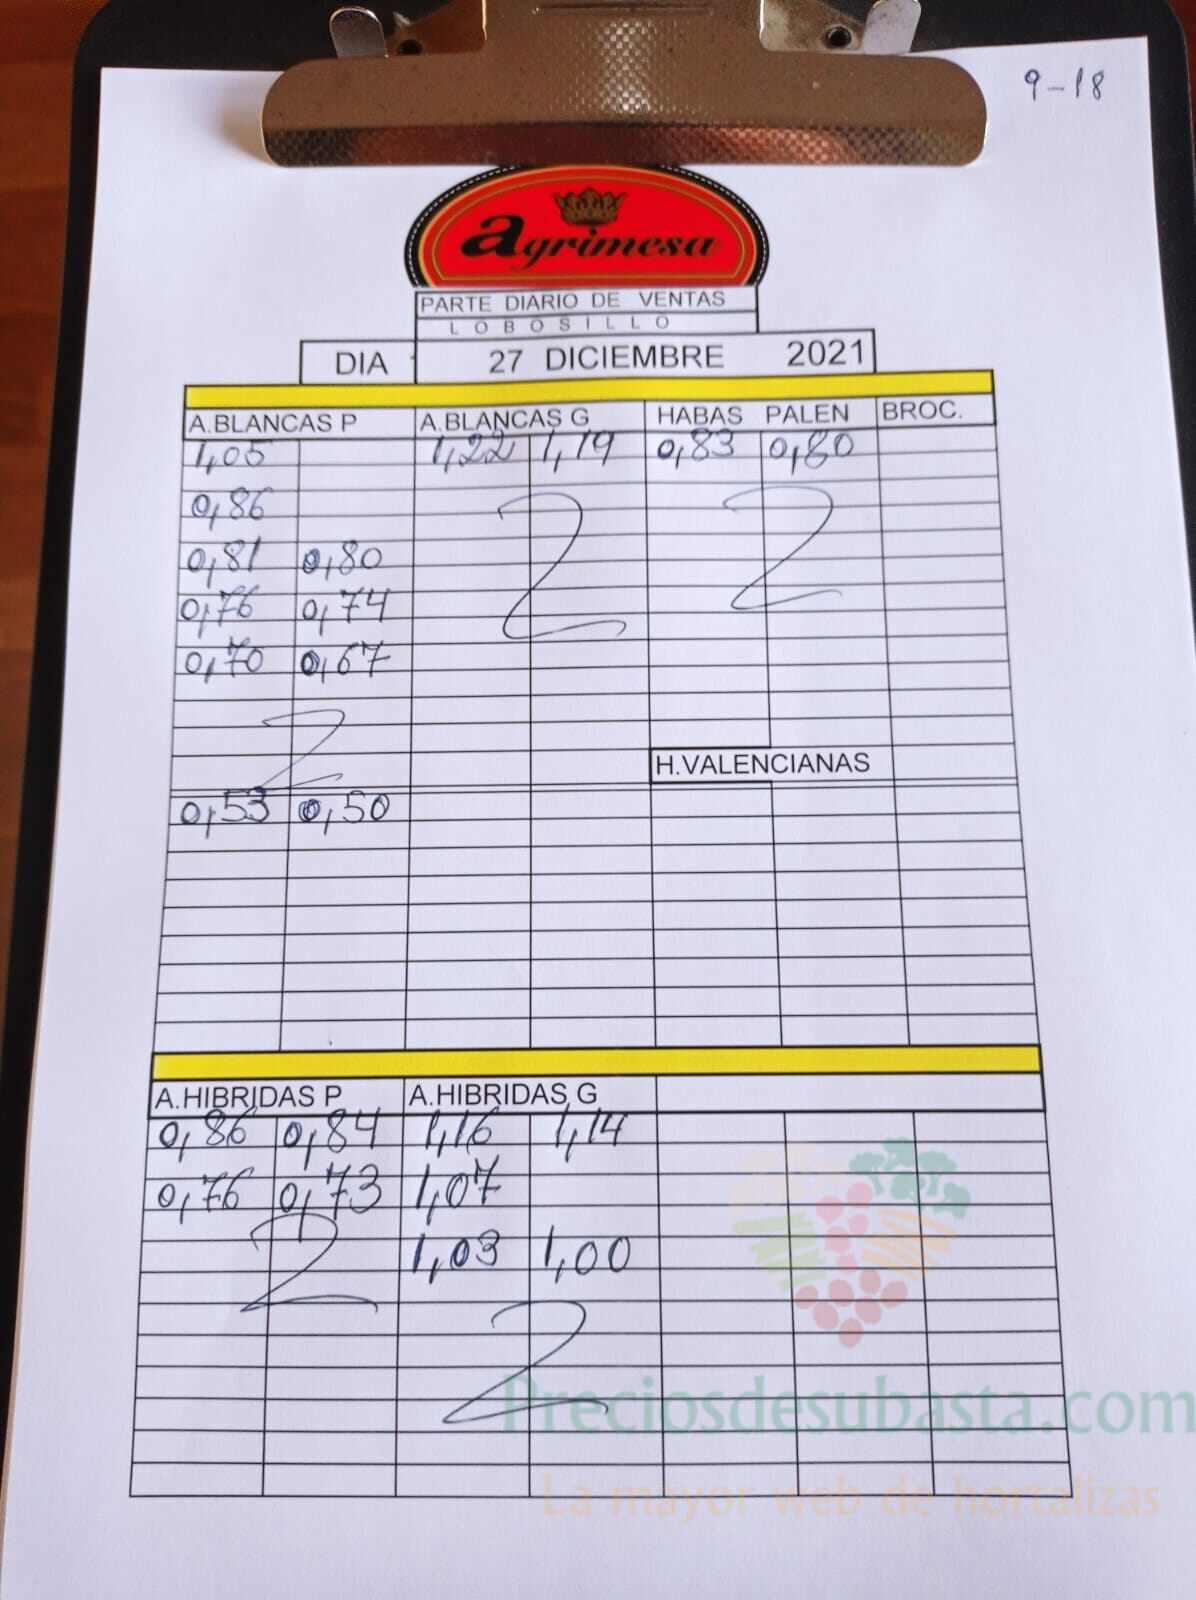 9-18
agrimesa
PARTE DIARIO DE VENTAS
LOBOSILLO
DIA 27 DICIEMBRE 2021
A.BLANCAS P A.BLANCAS G HABAS PALEN BROC.
1,05 1,22 1,19 0,83 0,80
0,86
0,81 0,80
0,76 0,74
0,70 0,67
H.VALENCIANAS
0,53 0,50
A.HIBRIDAS P A.HIBRIDAS G
0,86 0,84 1,16 1,14
0,76 0,73 1,07
1,03 1,00
Preciosdesubasta.com
La mayor web de hortalizas